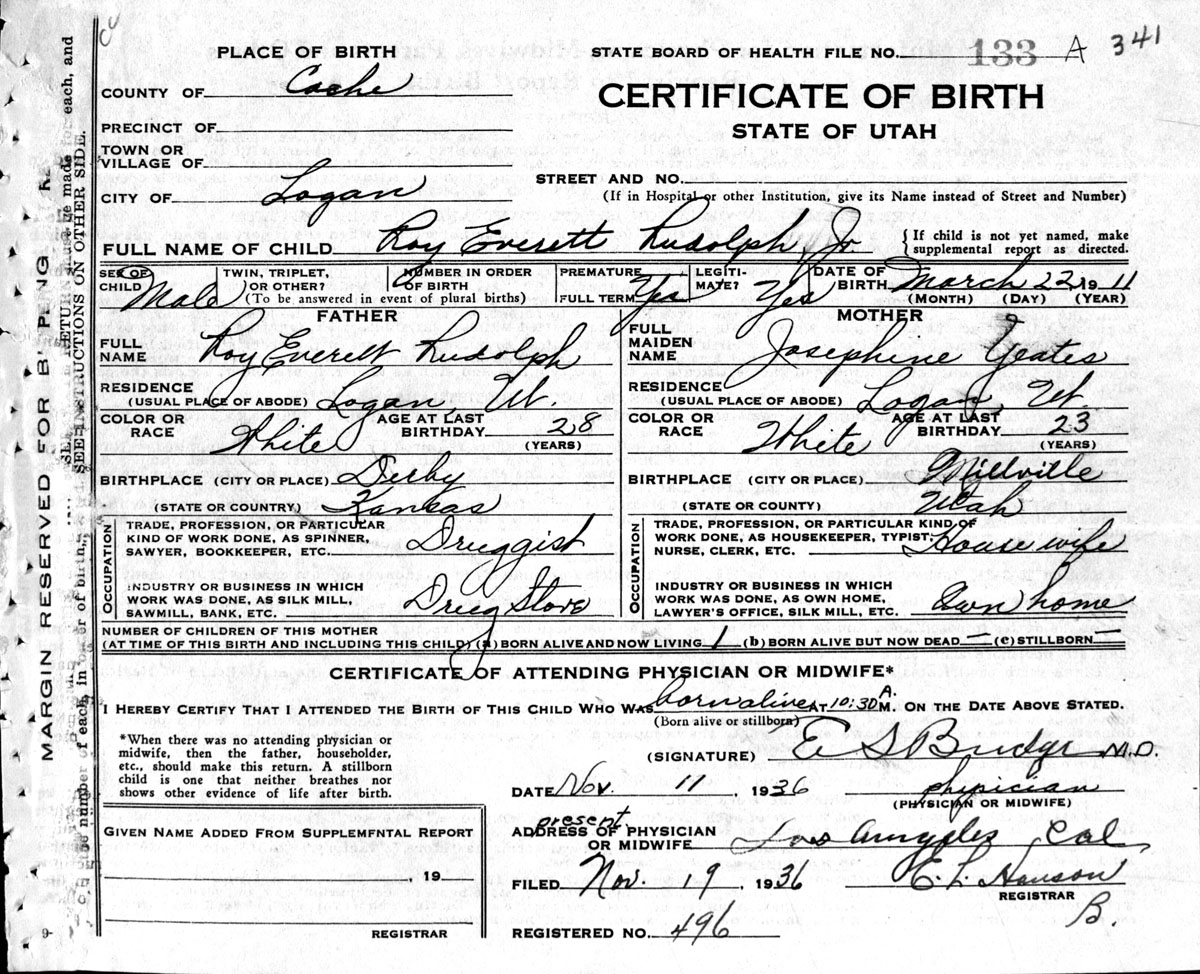 PLACE OF BIRTH
STATE BOARD OF HEALTH FILE NO. 133 A 341
COUNTY OF Cache
CERTIFICATE OF BIRTH
PRECINCT OF
STATE OF UTAH
TOWN OR
VILLAGE OF
STREET AND NO.
CITY OF Logan
(If in Hospital or other Institution, give its Name instead of Street and Number)
FULL NAME OF CHILD Roy Everett Rudolph, Jr
{If child is not yet named, make
supplemental report as directed.
SEX OF CHILD Male
TWIN, TRIPLET, OR OTHER?
NUMBER IN ORDER OF BIRTH
(To be answered in event of plural births)
PREMATURE
FULL TERM Yes
LEGITIMATE? Yes
DATE OF BIRTH March 22 1911
(MONTH) (DAY) (YEAR)
FATHER
FULL NAME Roy Everett Rudolph
RESIDENCE
(USUAL PLACE OF ABODE) Logan, Ut.
COLOR OR RACE White
AGE AT LAST BIRTHDAY 28
(YEARS)
BIRTHPLACE (CITY OR PLACE) Derby
(STATE OR COUNTRY) Kansas
OCCUPATION
TRADE, PROFESSION, OR PARTICULAR
KIND OF WORK DONE, AS SPINNER,
SAWYER, BOOKKEEPER, ETC. Druggist
INDUSTRY OR BUSINESS IN WHICH
WORK WAS DONE, AS SILK MILL,
SAWMILL, BANK, ETC. Drug Store
MOTHER
FULL MAIDEN NAME Josephine Yeates
RESIDENCE
(USUAL PLACE OF ABODE) Logan, Ut.
COLOR OR RACE White
AGE AT LAST BIRTHDAY 23
(YEARS)
BIRTHPLACE (CITY OR PLACE) Millville
(STATE OR COUNTY) Utah
OCCUPATION
TRADE, PROFESSION, OR PARTICULAR KIND OF
WORK DONE, AS HOUSEKEEPER, TYPIST,
NURSE, CLERK, ETC. House wife
INDUSTRY OR BUSINESS IN WHICH
WORK WAS DONE, AS OWN HOME,
LAWYER'S OFFICE, SILK MILL, ETC. Own home
NUMBER OF CHILDREN OF THIS MOTHER
(AT TIME OF THIS BIRTH AND INCLUDING THIS CHILD) (a) BORN ALIVE AND NOW LIVING 1 (b) BORN ALIVE BUT NOW DEAD — (c) STILLBORN —
CERTIFICATE OF ATTENDING PHYSICIAN OR MIDWIFE*
I HEREBY CERTIFY THAT I ATTENDED THE BIRTH OF THIS CHILD WHO WAS born alive AT 10:30 A. M. ON THE DATE ABOVE STATED.
(Born alive or stillborn)
*When there was no attending physician or
midwife, then the father, householder,
etc., should make this return. A stillborn
child is one that neither breathes nor
shows other evidence of life after birth.
(SIGNATURE) E S Budge M.D.
DATE Nov. 11, 1936 physician
(PHYSICIAN OR MIDWIFE)
present
ADDRESS OF PHYSICIAN
OR MIDWIFE Los Angeles Cal
GIVEN NAME ADDED FROM SUPPLEMENTAL REPORT
19
REGISTRAR
FILED Nov. 19, 1936 E. L. Hanson
REGISTRAR
B.
REGISTERED NO. 496
MARGIN RESERVED FOR
SEE INSTRUCTIONS ON OTHER SIDE.